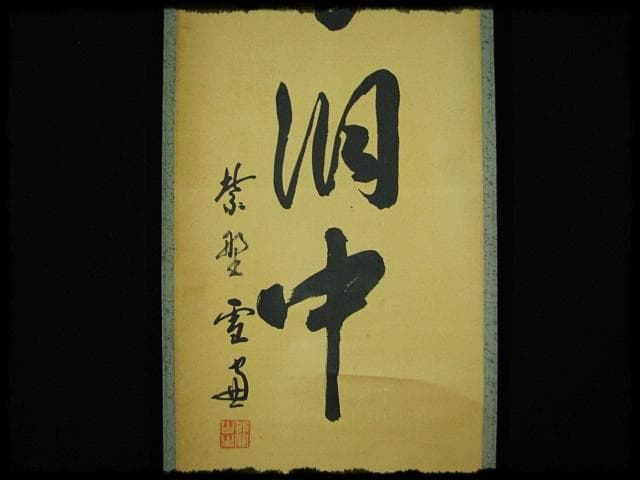 洞中
紫野雪窓